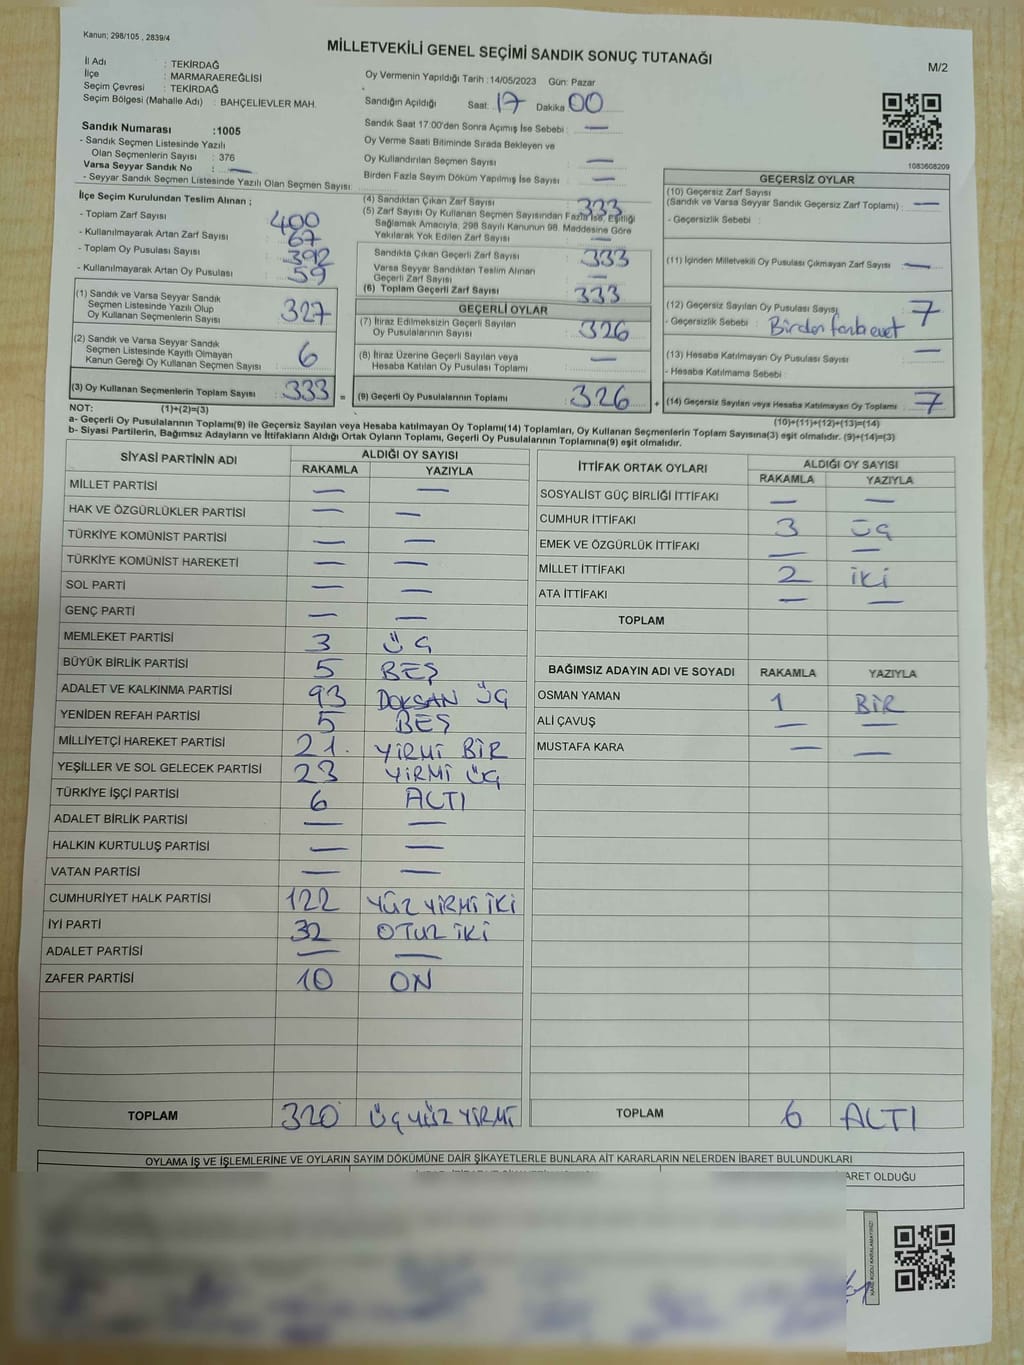 Kanun; 298/105 , 2839/4
MİLLETVEKİLİ GENEL SEÇİMİ SANDIK SONUÇ TUTANAĞI
M/2
İl Adı : TEKİRDAĞ
İlçe : MARMARAEREĞLİSİ
Seçim Çevresi : TEKİRDAĞ
Seçim Bölgesi (Mahalle Adı) : BAHÇELİEVLER MAH.
Sandık Numarası :1005
- Sandık Seçmen Listesinde Yazılı
Olan Seçmenlerin Sayısı : 376
Varsa Seyyar Sandık No : —
- Seyyar Sandık Seçmen Listesinde Yazılı Olan Seçmen Sayısı:
Oy Vermenin Yapıldığı Tarih :14/05/2023 Gün: Pazar
Sandığın Açıldığı Saat: 17 Dakika 00
Sandık Saat 17:00'den Sonra Açımış İse Sebebi : —
Oy Verme Saati Bitiminde Sırada Bekleyen ve
Oy Kullandırılan Seçmen Sayısı —
Birden Fazla Sayım Döküm Yapılmış İse Sayısı : —
1083608209
İlçe Seçim Kurulundan Teslim Alınan ;
- Toplam Zarf Sayısı : 400
- Kullanılmayarak Artan Zarf Sayısı : 67
- Toplam Oy Pusulası Sayısı : 392
- Kullanılmayarak Artan Oy Pusulası : 59
(1) Sandık ve Varsa Seyyar Sandık
Seçmen Listesinde Yazılı Olup
Oy Kullanan Seçmenlerin Sayısı : 327
(2) Sandık ve Varsa Seyyar Sandık
Seçmen Listesinde Kayıtlı Olmayan
Kanun Gereği Oy Kullanan Seçmen Sayısı : 6
(3) Oy Kullanan Seçmenlerin Toplam Sayısı : 333 =
(4) Sandıktan Çıkan Zarf Sayısı : 333
(5) Zarf Sayısı Oy Kullanan Seçmen Sayısından Fazla İse, Eşitliği
Sağlamak Amacıyla; 298 Sayılı Kanunun 98. Maddesine Göre
Yakılarak Yok Edilen Zarf Sayısı : —
Sandıkta Çıkan Geçerli Zarf Sayısı : 333
Varsa Seyyar Sandıktan Teslim Alınan
Geçerli Zarf Sayısı : —
(6) Toplam Geçerli Zarf Sayısı : 333
GEÇERLİ OYLAR
(7) İtiraz Edilmeksizin Geçerli Sayılan
Oy Pusulalarının Sayısı : 326
(8) İtiraz Üzerine Geçerli Sayılan veya
Hesaba Katılan Oy Pusulası Toplamı : —
(9) Geçerli Oy Pusulalarının Toplamı : 326 +
GEÇERSİZ OYLAR
(10) Geçersiz Zarf Sayısı
(Sandık ve Varsa Seyyar Sandık Geçersiz Zarf Toplamı) : —
- Geçersizlik Sebebi :
(11) İçinden Milletvekili Oy Pusulası Çıkmayan Zarf Sayısı : —
(12) Geçersiz Sayılan Oy Pusulası Sayısı : 7
- Geçersizlik Sebebi : Birden fazla evet
(13) Hesaba Katılmayan Oy Pusulası Sayısı : —
- Hesaba Katılmama Sebebi :
(14) Geçersiz Sayılan veya Hesaba Katılmayan Oy Toplamı : 7
NOT: (1)+(2)=(3) (10)+(11)+(12)+(13)=(14)
a- Geçerli Oy Pusulalarının Toplamı(9) ile Geçersiz Sayılan veya Hesaba katılmayan Oy Toplamı(14) Toplamları, Oy Kullanan Seçmenlerin Toplam Sayısına(3) eşit olmalıdır. (9)+(14)=(3)
b- Siyasi Partilerin, Bağımsız Adayların ve İttifakların Aldığı Ortak Oyların Toplamı, Geçerli Oy Pusulalarının Toplamına(9) eşit olmalıdır.
SİYASİ PARTİNİN ADI ALDIĞI OY SAYISI
RAKAMLA YAZIYLA
MİLLET PARTİSİ — —
HAK VE ÖZGÜRLÜKLER PARTİSİ — —
TÜRKİYE KOMÜNİST PARTİSİ — —
TÜRKİYE KOMÜNİST HAREKETİ — —
SOL PARTİ — —
GENÇ PARTİ — —
MEMLEKET PARTİSİ 3 ÜÇ
BÜYÜK BİRLİK PARTİSİ 5 BEŞ
ADALET VE KALKINMA PARTİSİ 93 DOKSAN ÜÇ
YENİDEN REFAH PARTİSİ 5 BEŞ
MİLLİYETÇİ HAREKET PARTİSİ 21. YİRMİ BİR
YEŞİLLER VE SOL GELECEK PARTİSİ 23 YİRMİ ÜÇ
TÜRKİYE İŞÇİ PARTİSİ 6 ALTI
ADALET BİRLİK PARTİSİ — —
HALKIN KURTULUŞ PARTİSİ — —
VATAN PARTİSİ — —
CUMHURİYET HALK PARTİSİ 122 YÜZ YİRMİ İKİ
İYİ PARTİ 32 OTUZ İKİ
ADALET PARTİSİ — —
ZAFER PARTİSİ 10 ON
TOPLAM 320 ÜÇ YÜZ YİRMİ
İTTİFAK ORTAK OYLARI ALDIĞI OY SAYISI
RAKAMLA YAZIYLA
SOSYALİST GÜÇ BİRLİĞİ İTTİFAKI — —
CUMHUR İTTİFAKI 3 ÜÇ
EMEK VE ÖZGÜRLÜK İTTİFAKI — —
MİLLET İTTİFAKI 2 İKİ
ATA İTTİFAKI — —
TOPLAM
BAĞIMSIZ ADAYIN ADI VE SOYADI RAKAMLA YAZIYLA
OSMAN YAMAN 1 BİR
ALİ ÇAVUŞ — —
MUSTAFA KARA — —
TOPLAM 6 ALTI
OYLAMA İŞ VE İŞLEMLERİNE VE OYLARIN SAYIM DÖKÜMÜNE DAİR ŞİKAYETLERLE BUNLARA AİT KARARLARIN NELERDEN İBARET BULUNDUKLARI
ARET OLDUĞU
KARE KODU KARALAMAYINIZ!